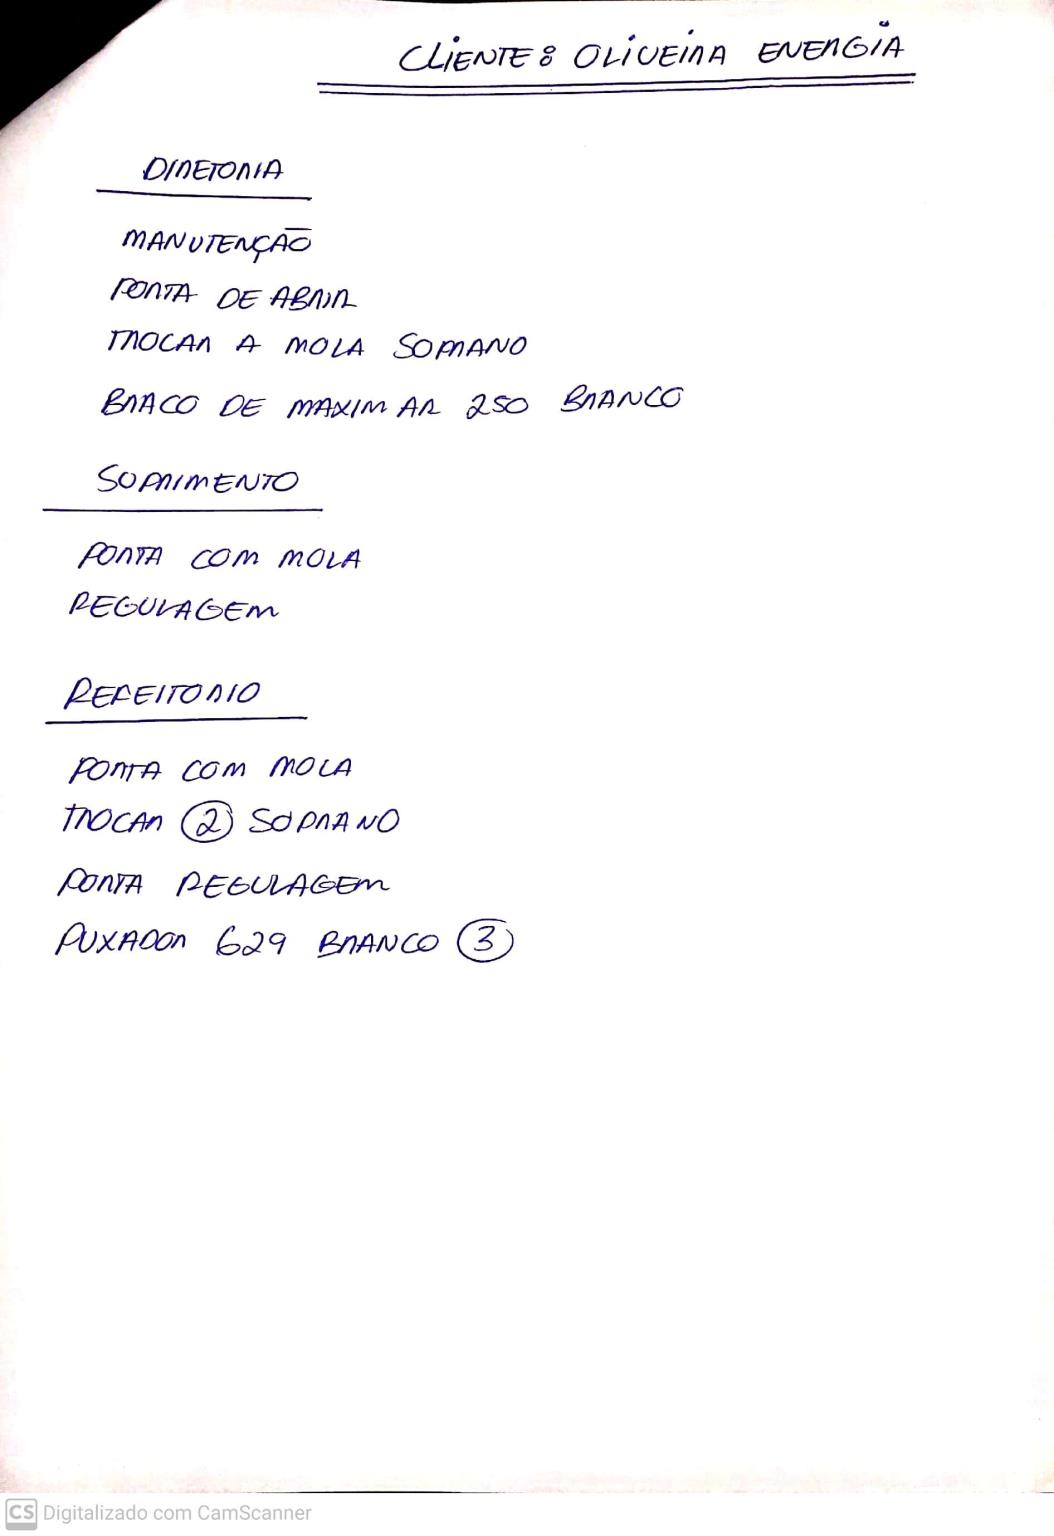 CLIENTE: OLIVEIRA ENERGIA
DIRETORIA
MANUTENÇÃO
PORTA DE ABRIR
TROCAR A MOLA SOPRANO
BRACO DE MAXIM AR 250 BRANCO
SUPRIMENTO
PORTA COM MOLA
REGULAGEM
REFEITORIO
PORTA COM MOLA
TROCAR 2 SOPRANO
PORTA REGULAGEM
PUXADOR 629 BRANCO 3
CS Digitalizado com CamScanner